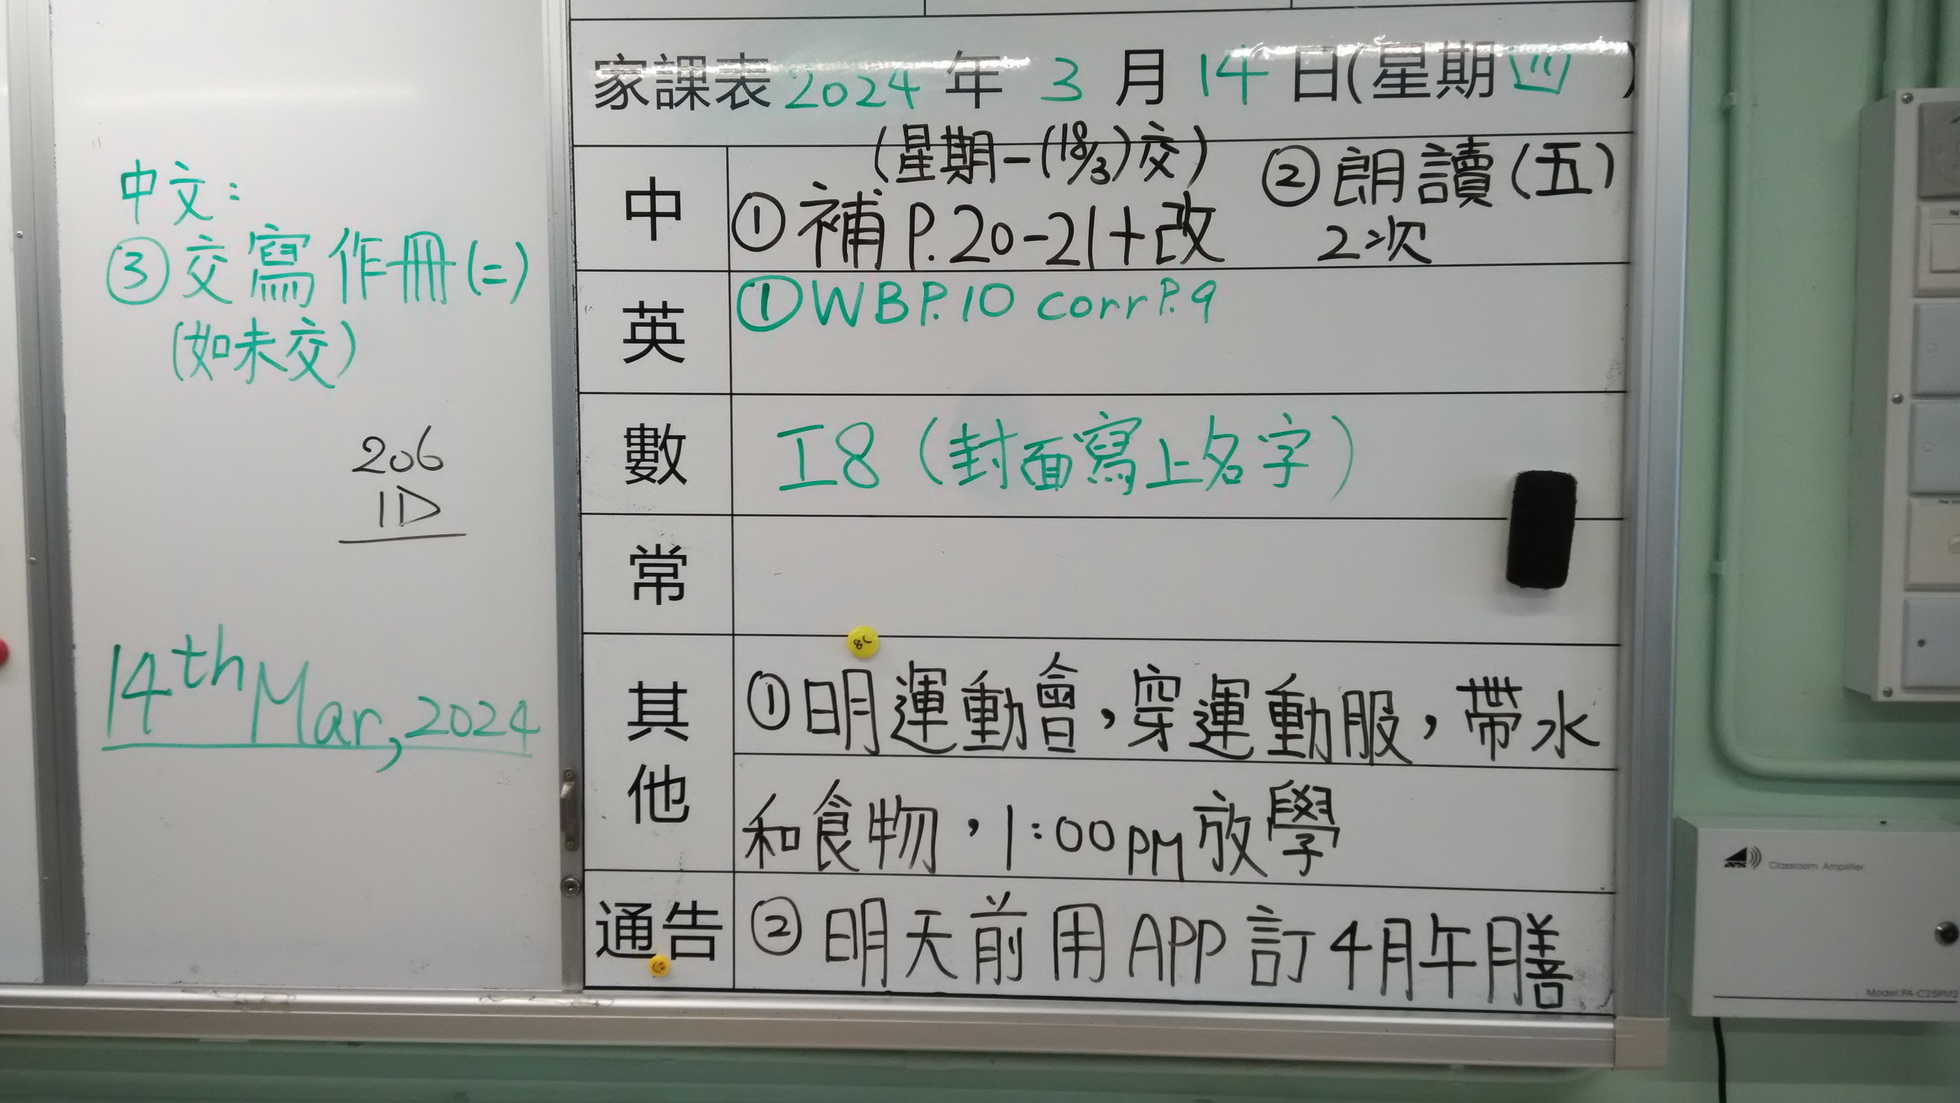 中文：
③交寫作冊(二)
(如未交)
206
1D
14th Mar, 2024
家課表 2024 年 3 月 14 日(星期四)
中
(星期一(18/3)交)
①補 P.20-21+改
②朗讀(五)
2次
英
①WB P.10 corr P.9
數
工8 (封面寫上名字)
常
其他
①明運動會，穿運動服，帶水
和食物，1:00PM放學
通告
②明天前用APP訂4月午膳
Classroom Amplifier
Model:PA-C25PM2